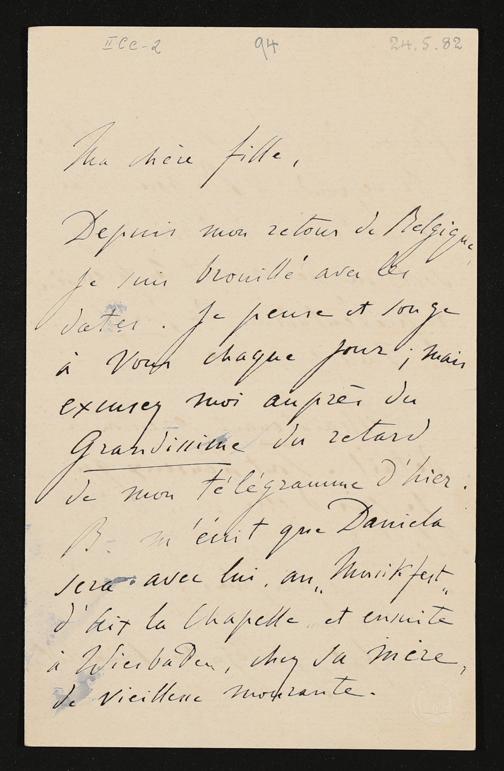 II Cc-2 94 24.5.82
Ma chère fille,
Depuis mon retour de Belgique
je suis brouillé avec les
dates. Je pense et songe
à vous chaque jour; mais
excusez moi auprès du
Grandissime du retard
de mon télégramme d'hier.
B. m'écrit que Daniela
sera avec lui, au „Musikfest"
d'Aix la Chapelle et ensuite
à Wiesbaden, chez sa mère,
de vieillesse mourante.